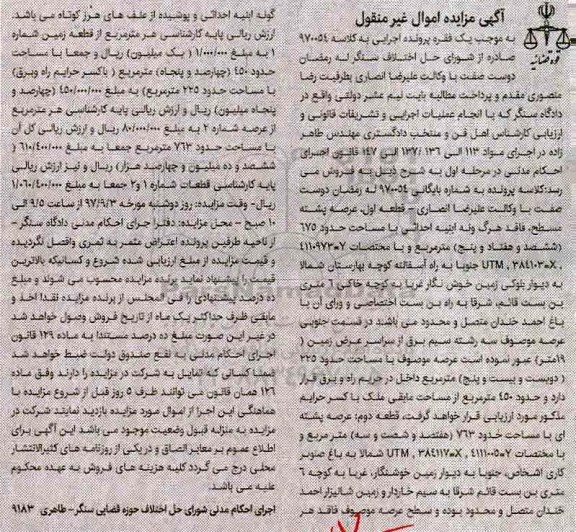 آگهی مزایده اموال غیر منقول
به موجب یک فقره پرونده اجرایی به کلاسه ۹۷۰۰۵۴
صادره از شورای حل اختلاف سنگر له رمضان
دوست صفت با وکالت علیرضا انصاری بطرفیت رضا
منصوری مقدم و پرداخت مطالبه بابت نیم عشر دولتی واقع در
دادگاه سنگر که با انجام عملیات اجرایی و تشریفات قانونی و
ارزیابی کارشناس اهل فن و منتخب دادگستری مهندس طاهر
زاده در اجرای مواد ۱۱۳ الی ۱۳۶ /۱۳۷ الی ۱۴۷ قانون اجرای
احکام مدنی در مرحله اول به شرح ذیل به فروش می
رسد:کلاسه پرونده به شماره بایگانی ۹۷۰۰۵۴ له رمضان دوست
صفت با وکالت علیرضا انصاری- قطعه اول، عرصه پشته
مسطح، فاقد هرگ ونه ابنیه احداثی با مساحت حدود ۶۷۵
(ششصد و هفتاد و پنج) مترمربع و با مختصات ۴۱۱۰۹۷۳۰۷
, UTM , ۳۸۴۱۰۳۰X جنوبا به راه آسفالته کوچه بهارستان شمالا
به دیوار بلوکی زمین خوش نگار غربا به کوچه خاکی ۶ متری
بن بست قائم، شرقا به راه بن بست اختصاصی و ورای آن با
باغ احمد خندان متصل و محدود می باشد در قسمت جنوبی
عرصه موصوف سه رشته سیم برق از سراسر عرض زمین (
۱۹متر) عبور نموده است عرصه موصوف با مساحت حدود ۲۲۵
( دویست و بیست و پنج) مترمربع داخل در حریم راه و برق قرار
دارد و حدود ۴۵۰ مترمربع از مساحت مابقی ملک با کسر حرایم
مذکور مورد ارزیابی قرار خواهد گرفت، قطعه دوم: عرصه پشته
ای با مساحت حدود ۷۶۳ (هفتصد و شصت و سه) متر مربع و
با مختصات UTM , ۳۸۴۱۱۷۰X , ۴۱۱۱۰۰۵۰۷ شمالا به باغ صنوبر
کاری اشخاص، جنوبا به دیوار زمین خوشنگار، غربا به کوچه ۶
متری بن بست قائم شرقا به سیم خاردار و زمین شالیزار احمد
خندان متصل و محدود بوده و سطح عرصه موصوف فاقد هر
گونه ابنیه احداثی و پوشیده از علف های هرز کوتاه می باشد.
ارزش ریالی پایه کارشناسی هر مترمربع از قطعه زمین شماره
۱ به مبلغ ۱/۰۰۰/۰۰۰ ( یک میلیون) ریال و جمعا با مساحت
حدود ۴۵۰ (چهارصد و پنجاه) مترمربع ( باکسر حرایم راه وبرق)
با مساحت حدود ۲۲۵ مترمربع) به مبلغ ۴۵۰/۰۰۰/۰۰۰ (چهارصد و
پنجاه میلیون) ریال و ارزش ریالی پایه کارشناسی هر مترمربع
از عرصه شماره ۲ به مبلغ ۸۰۰/۰۰۰ ریال و ارزش ریالی کل آن
با مساحت حدود ۷۶۳ مترمربع جمعا به مبلغ ۶۱۰/۴۰۰/۰۰۰ (
ششصد و ده میلیون و چهارصد هزار) ریال و نیز ارزش ریالی
پایه کارشناسی قطعات شماره ۱ و۲ جمعا به مبلغ ۱/۰۶۰/۴۰۰/۰۰۰
ریال- وقت مزایده: روز دوشنبه مورخه ۹۷/۹/۳ از ساعت ۹/۵ الی
۱۰ صبح - محل مزایده: دفتر اجرای احکام مدنی دادگاه سنگر -
از ناحیه طرفین پرونده اعتراض مثمر به ثمری واصل نگردیده
و قیمت مزایده از مبلغ ارزیابی شده شروع و کسانیکه بالاترین
قیمت را پیشنهاد نماید برنده مزایده محسوب می شوند و مبلغ
ده درصد پیشنهادی را فی المجلس از برنده مزایده نقدا اخذ و
مابقی ظرف حداکثر یک ماه از تاریخ فروش وصول خواهد شد
در غیر این صورت مبلغ ده درصد مستندا به ماده ۱۲۹ قانون
اجرای احکام مدنی به نفع صندوق دولت ضبط خواهد شد
ضمنا کسانی که تمایل به شرکت در مزایده را دارند وفق ماده
۱۲۶ همان قانون می توانند ظرف ۵ روز قبل از شروع مزایده با
هماهنگی این اجرا از اموال مورد مزایده بازدید نمایند شرکت در
مزایده به منزله قبول وضعیت موجود می باشد این آگهی برای
اطلاع عموم بر معابر الصاق و دریکی از روزنامه های کثیرالانتشار
محلی درج می گردد کلیه هزینه های فروش به عهده محکوم
علیه می باشد.
اجرای احکام مدنی شورای حل اختلاف حوزه قضایی سنگر - طاهری ۹۱۸۳